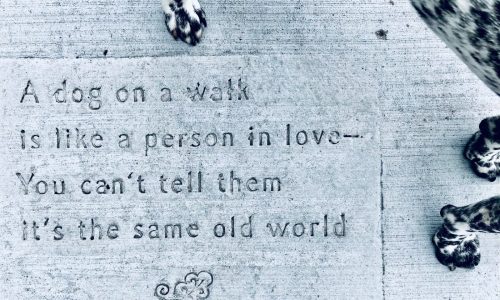 A dog on a walk
is like a person in love—
You can't tell them
it's the same old world